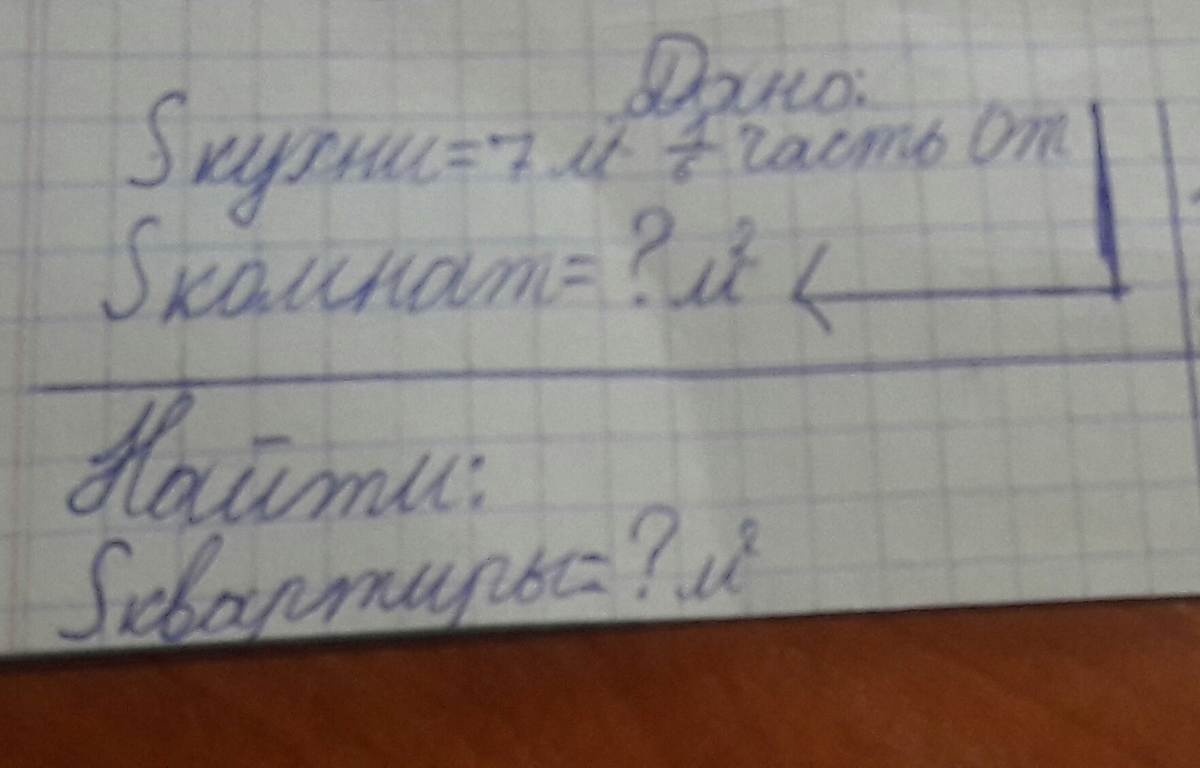 Дано:
Sкухни=7 м² 1/6 часть от
Sкомнат=?м²
Найти:
Sквартиры=?м²